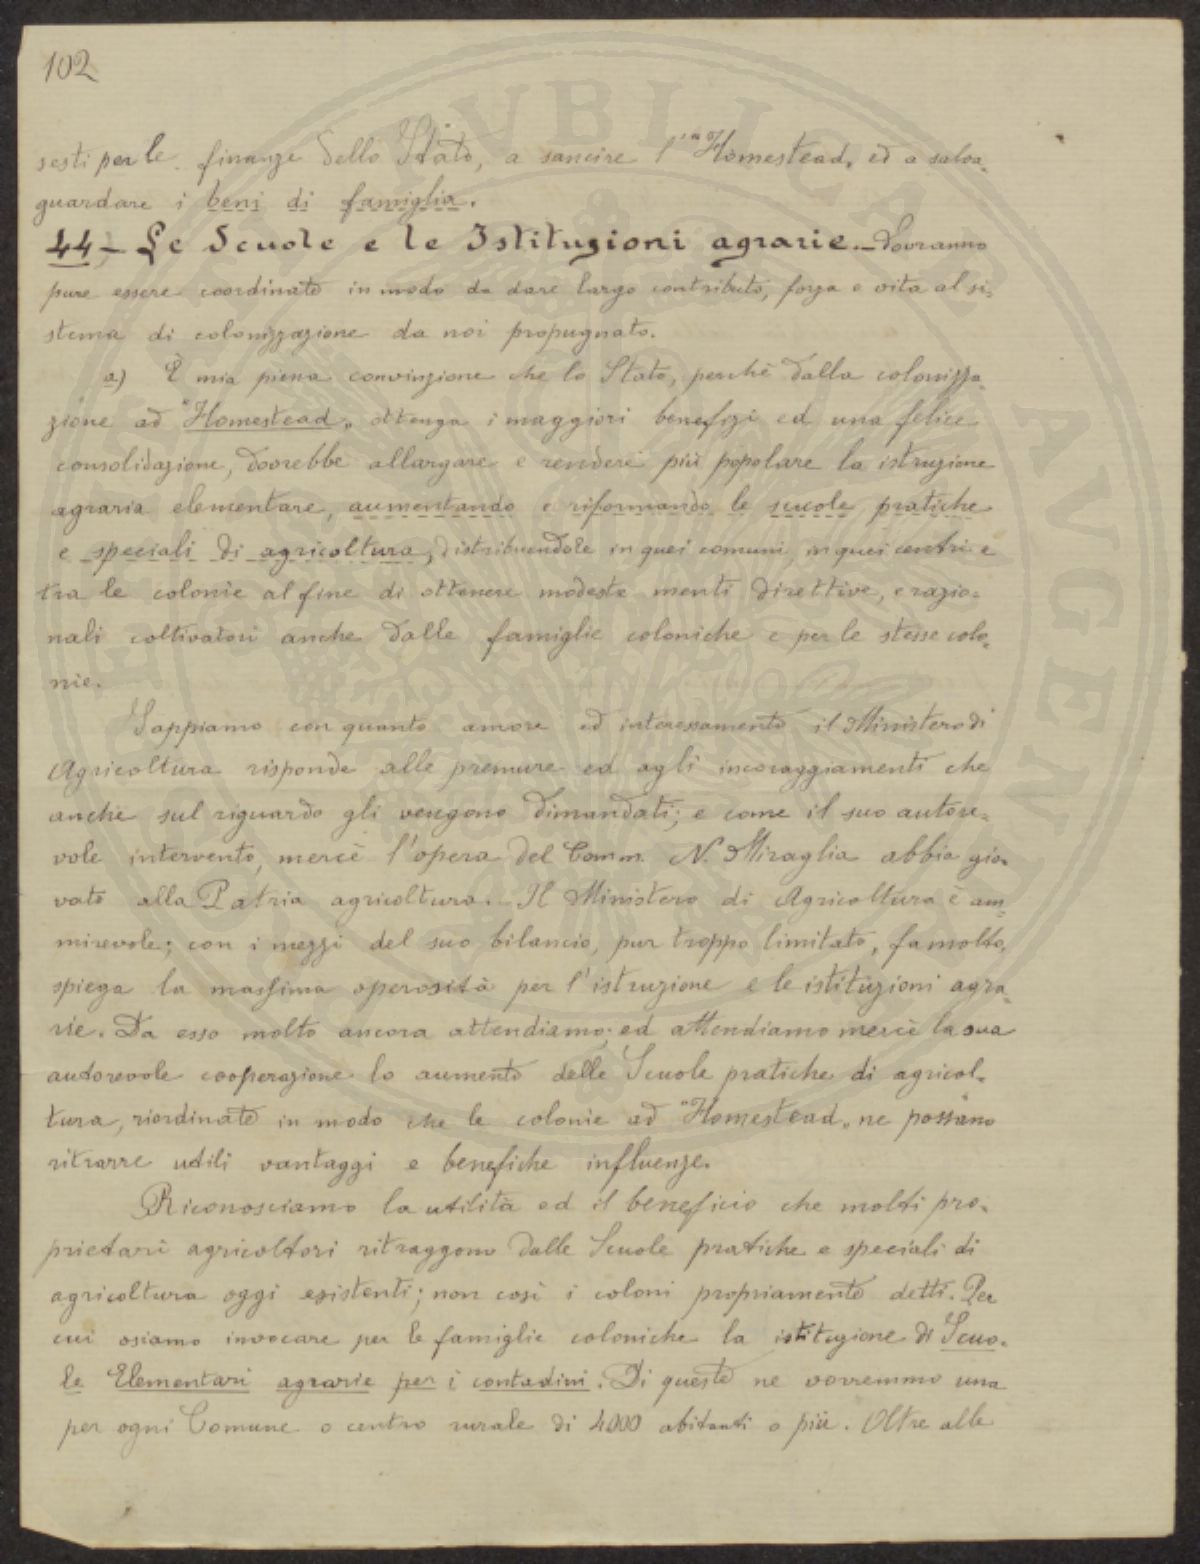 102
sesti per le finanze dello Stato, a sancire l'"Homestead„ ed a salva-
guardare i beni di famiglia.
44 - Le Scuole e le Istituzioni agrarie. - Dovranno
pure essere coordinate in modo da dare largo contributo, forza e vita al si-
stema di colonizzazione da noi propugnato.
a) È mia piena convinzione che lo Stato, perchè dalla colonizza-
zione ad "Homestead„ ottenga i maggiori benefizi ed una felice
consolidazione, dovrebbe allargare e rendere più popolare la istruzione
agraria elementare, aumentando e riformando le scuole pratiche
e speciali di agricoltura, distribuendole in quei comuni, in quei centri e
tra le colonie al fine di ottenere modeste menti direttive, e razio-
nali coltivatori anche dalle famiglie coloniche e per le stesse colo-
nie.
Sappiamo con quanto amore ed interessamento il Ministero di
Agricoltura risponde alle premure ed agli incoraggiamenti che
anche sul riguardo gli vengono dimandati; e come il suo autore-
vole intervento, mercè l'opera del Comm. N. Miraglia abbia gio-
vato alla Patria agricoltura. Il Ministero di Agricoltura è am-
mirevole; con i mezzi del suo bilancio, pur troppo limitato, fa molto,
spiega la massima operosità per l'istruzione e le istituzioni agra-
rie. Da esso molto ancora attendiamo; ed attendiamo mercè la sua
autorevole cooperazione lo aumento delle Scuole pratiche di agricol-
tura, riordinate in modo che le colonie ad "Homestead„ ne possano
ritrarre utili vantaggi e benefiche influenze.
Riconosciamo la utilità ed il beneficio che molti pro-
prietari agricoltori ritraggono dalle Scuole pratiche e speciali di
agricoltura oggi esistenti; non così i coloni propriamente detti. Per
cui osiamo invocare per le famiglie coloniche la istituzione di Scuo-
le Elementari agrarie per i contadini. Di queste ne vorremmo una
per ogni Comune o centro rurale di 4000 abitanti o più. Oltre alle